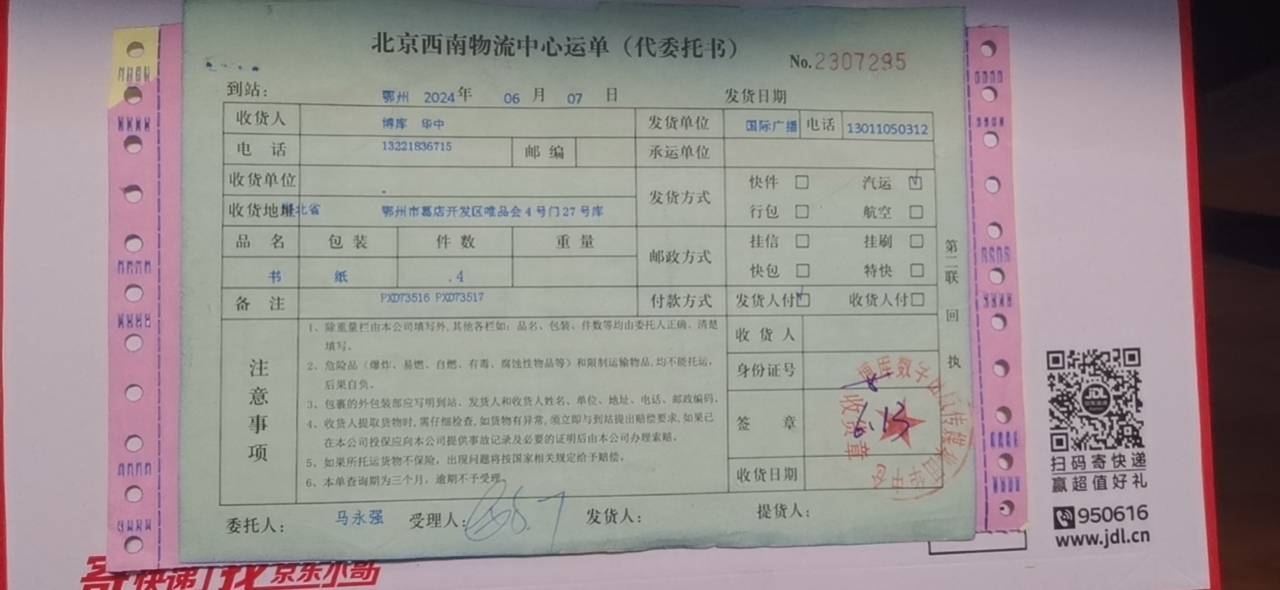 北京西南物流中心运单（代委托书）
No.2307295
到站： 鄂州 2024年 06 月 07 日 发货日期
收货人 博库 华中 发货单位 国际广播 电话 13011050312
电 话 13221836715 邮编 承运单位
收货单位 发货方式 快件 □ 汽运 ☑
收货地址 北省 鄂州市葛店开发区唯品会4号门27号库 行包 □ 航空 □
品 名 包 装 件 数 重 量 邮政方式 挂信 □ 挂刷 □
书 纸 4 快包 □ 特快 □
备 注 PXD73516 PXD73517 付款方式 发货人付☑ 收货人付□
注意事项
1、除重量栏由本公司填写外,其他各栏如：品名、包装、件数等均由委托人正确、清楚
填写。
2、危险品（爆炸、易燃、自燃、有毒、腐蚀性物品等）和限制运输物品,均不能托运,
后果自负。
3、包裹的外包装部应写明到站、发货人和收货人姓名、单位、地址、电话、邮政编码。
4、收货人提取货物时,需仔细检查,如货物有异常,须立即与到站提出赔偿要求,如果已
在本公司投保应向本公司提供事故记录及必要的证明后由本公司办理索赔。
5、如果所托运货物不保险，出现问题将按国家相关规定给予赔偿。
6、本单查询期为三个月，逾期不予受理。
收 货 人
身份证号
签 章
收货日期
6.13
收货章
委托人： 马永强 受理人： 6.7 发货人： 提货人：
第二联 回执
JDL
扫码寄快递
赢超值好礼
950616
www.jdl.cn
寄快递 找京东小哥